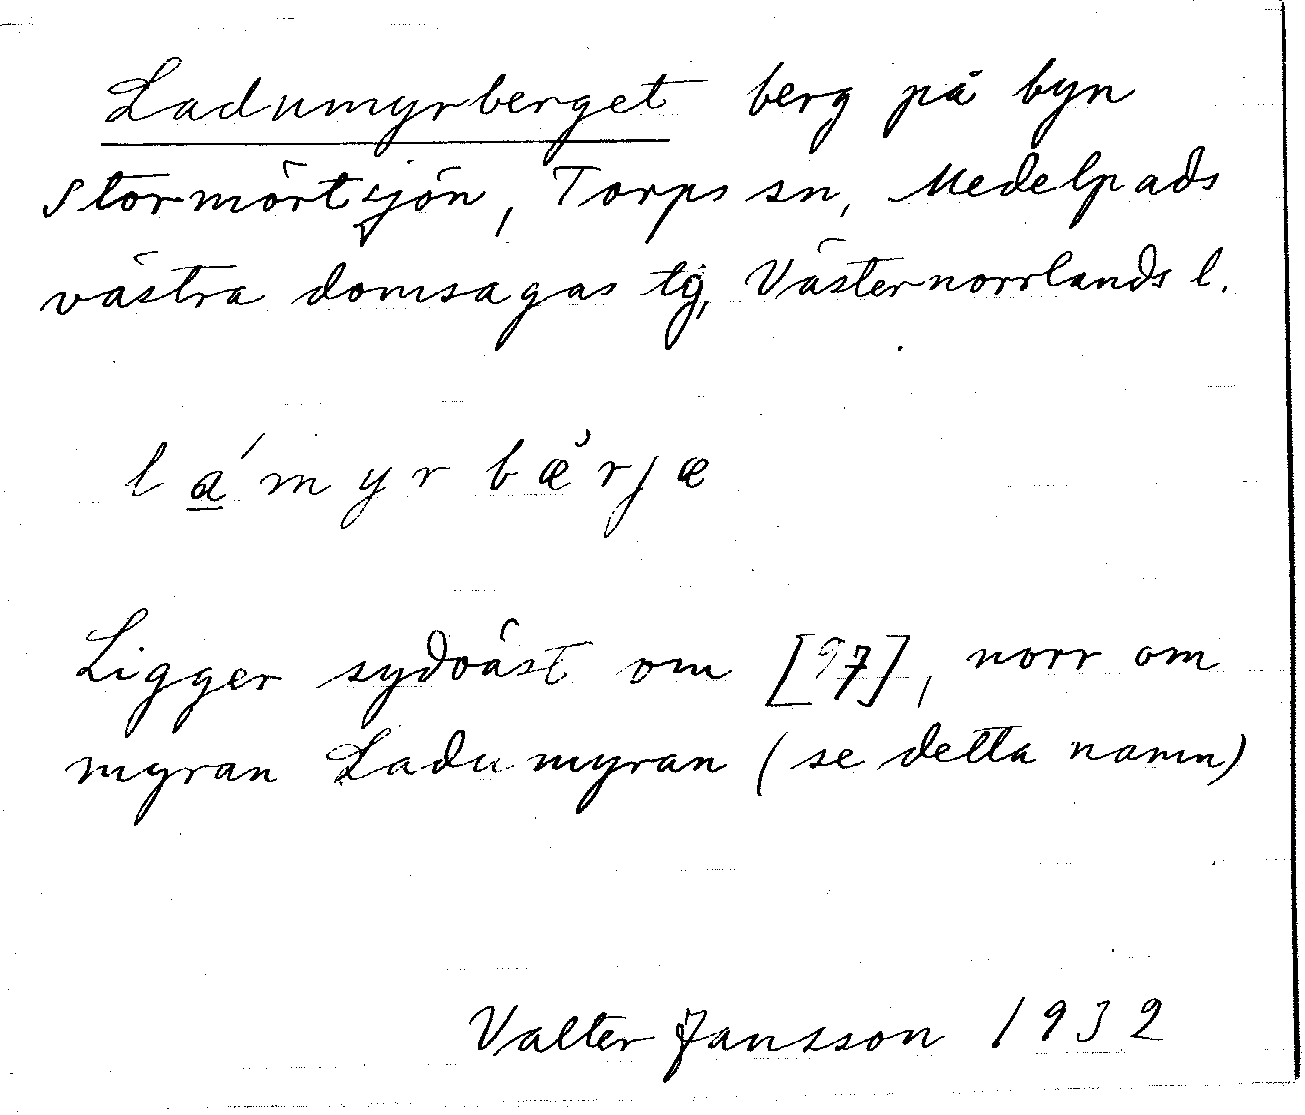 Ladumyrberget berg på byn
Stormörtsjön, Torps sn, Medelpads
västra domsagas tg, Västernorrlands l.
la̲´myrbæ̀rjæ
Ligger sydväst om [97], norr om
myran Ladumyran (se detta namn)
Valter Jansson 1932